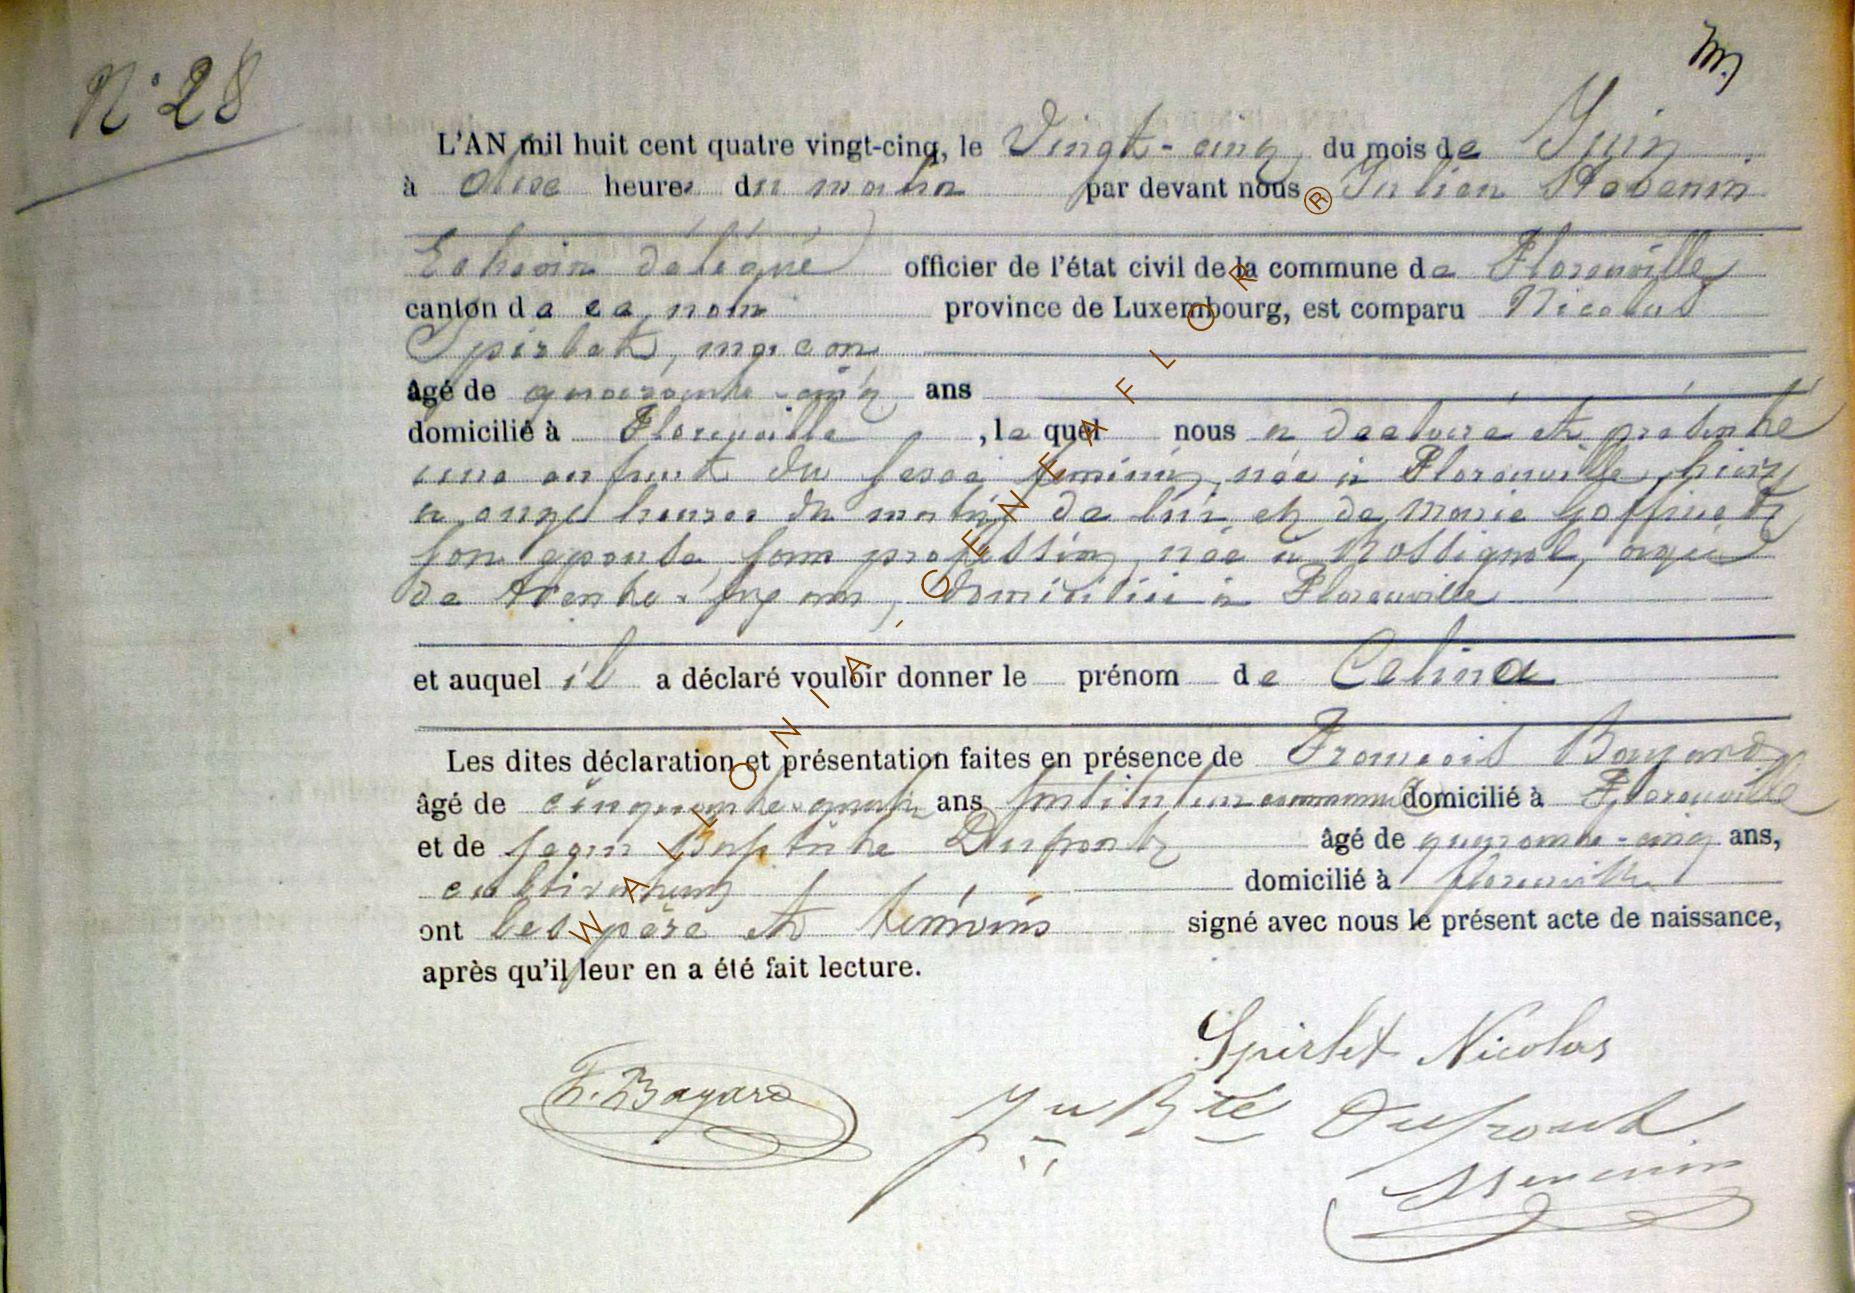 N° 28
L'AN mil huit cent quatre vingt-cinq, le Vingt-cinq du mois de Juin
à dixe heures du matin par devant nous Julien
Echevin délégué officier de l'état civil de la commune de Florenville
canton de ce nom province de Luxembourg, est comparu Nicolas
Spirlet, maçon
âgé de quarante-cinq ans
domicilié à Florenville, le quel nous a déclaré et présenté
une enfant du sexe féminin, née à Florenville, hier
à onze heures du matin de lui et de Marie Goffinet
son épouse, sans profession, née à Rossignol, agée
de trente ans, domiciliée à Florenville
et auquel il a déclaré vouloir donner le prénom de Celina
Les dites déclaration et présentation faites en présence de François Bayard
âgé de cinquante-quatre ans Instituteur communal domicilié à Florenville
et de Jean Baptiste Dufrout âgé de quarante-cinq ans,
cultivateur domicilié à florenville
ont les père et témoins signé avec nous le présent acte de naissance,
après qu'il leur en a été fait lecture.
Spirlet Nicolas
F. Bayard
Jn Bte Dufrout
WALLONIA - GENEAFLOR ®